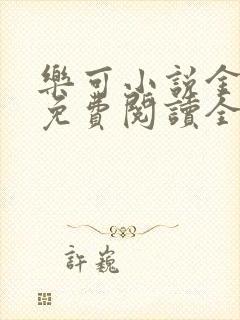 樂可小說全
免費閱讀全
許巍